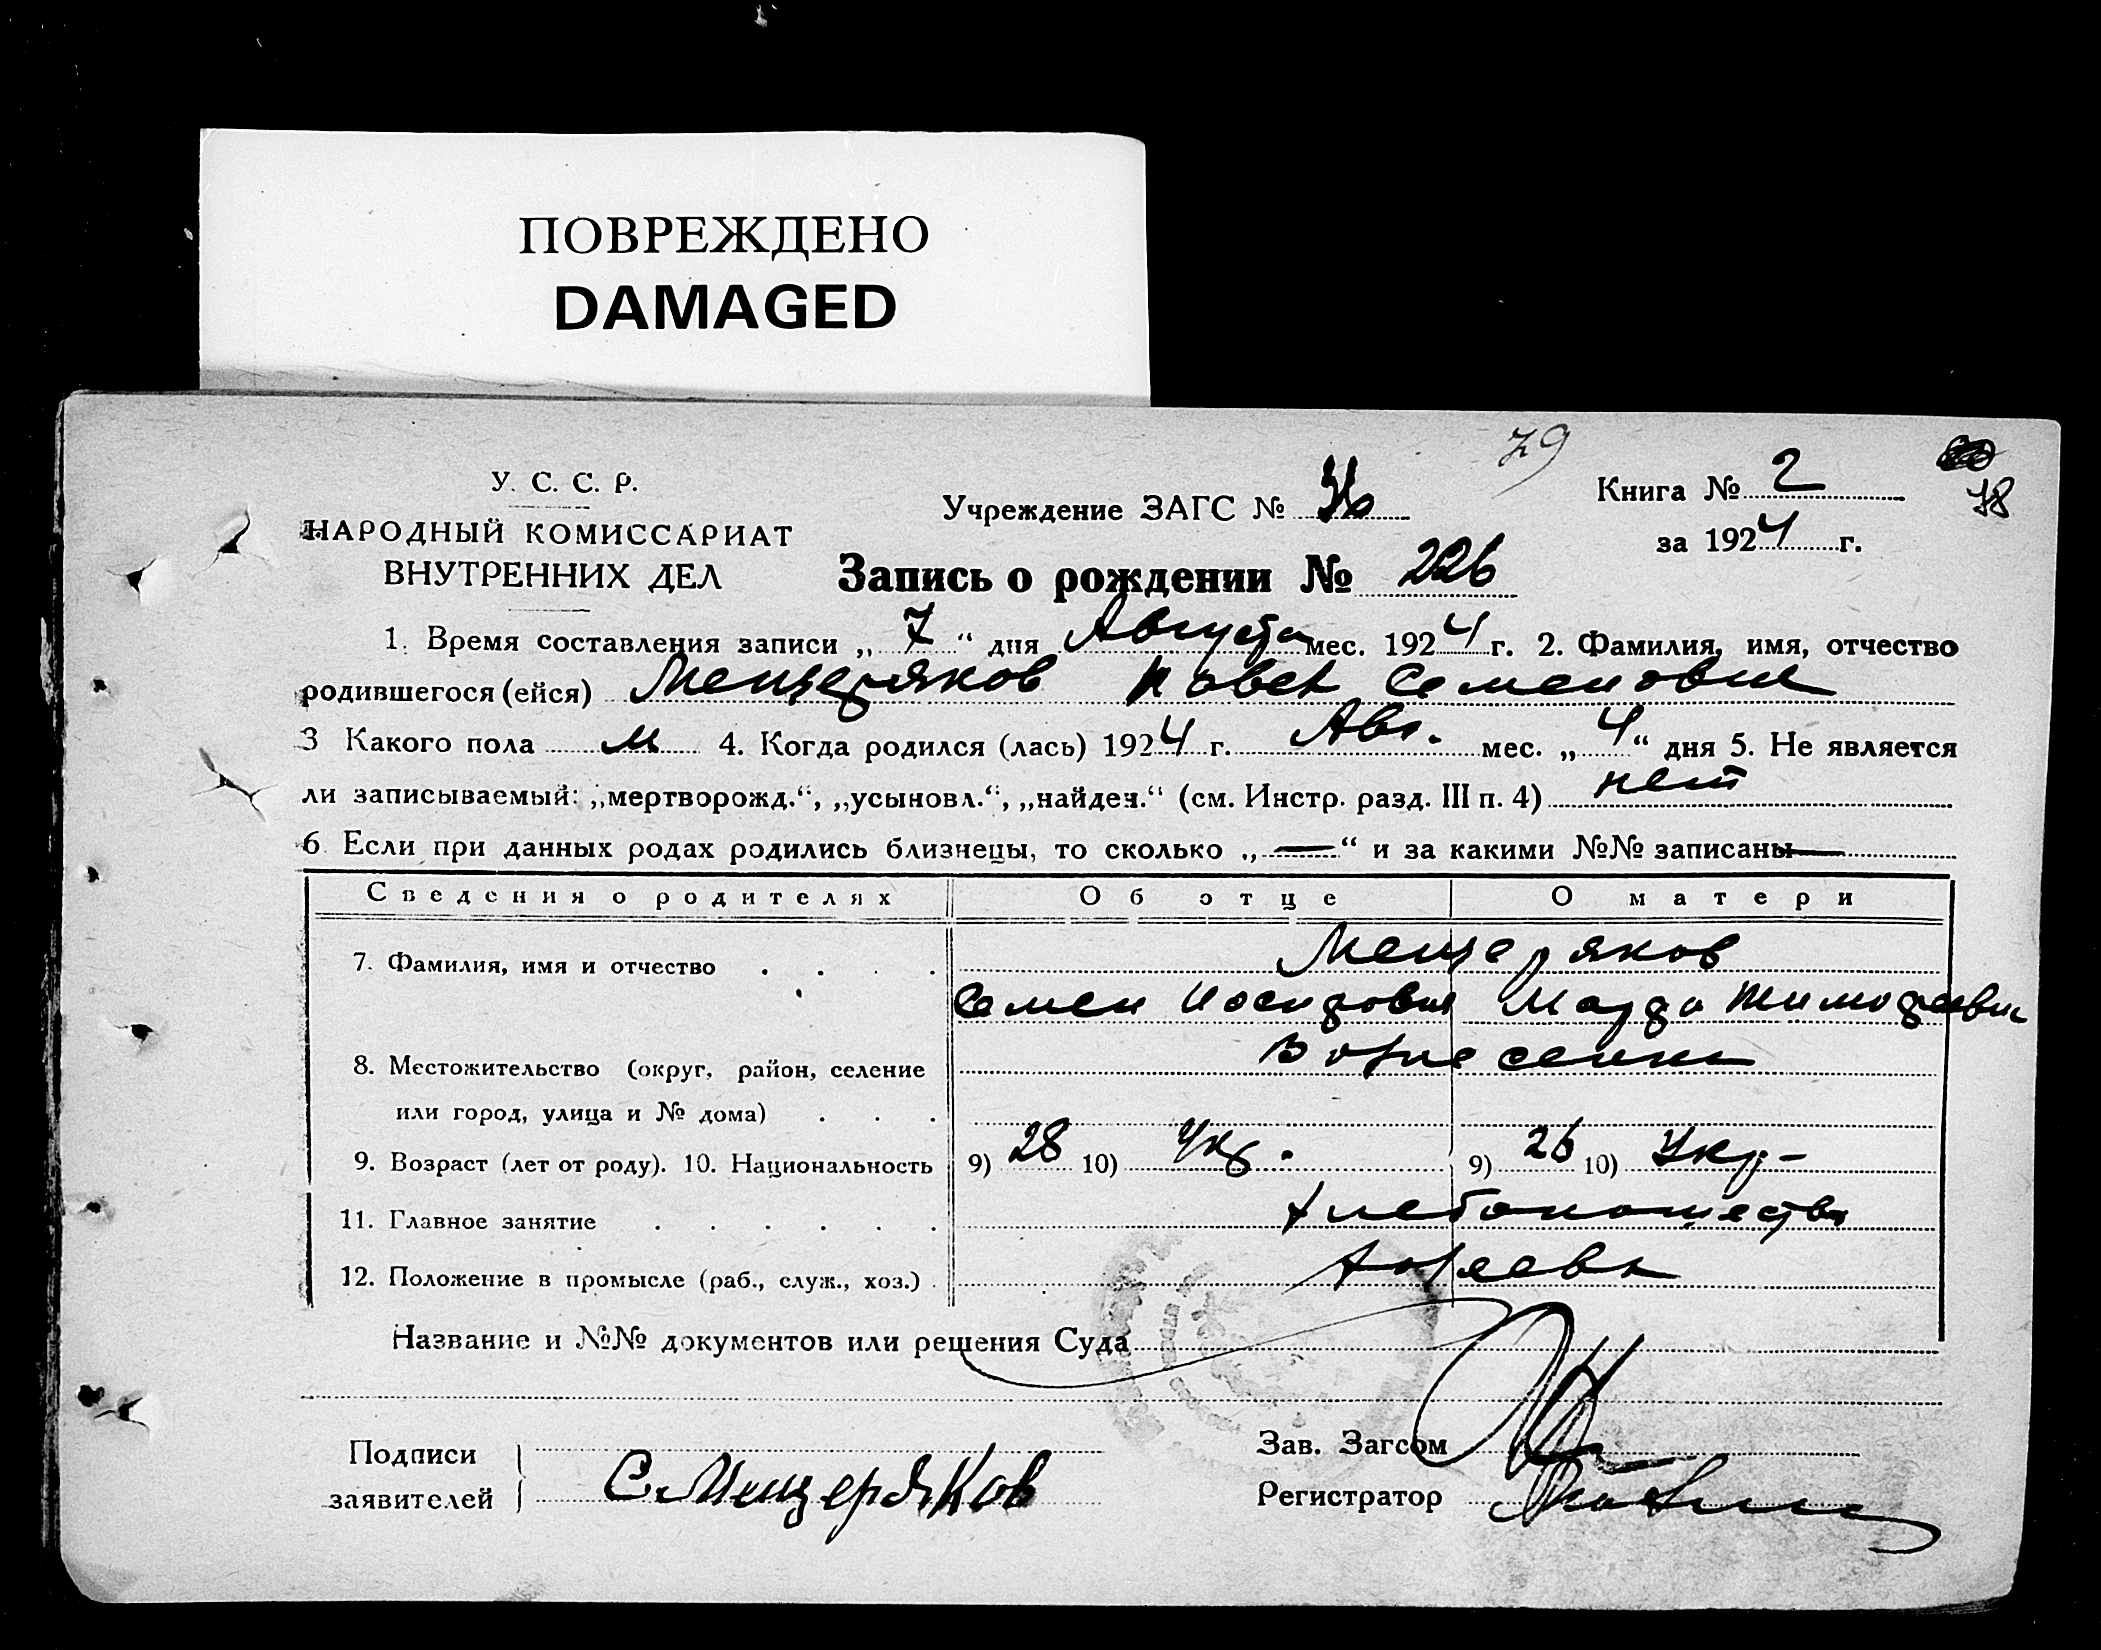 ПОВРЕЖДЕНО
DAMAGED
79
78
У. С. С. Р.
НАРОДНЫЙ КОМИССАРИАТ
ВНУТРЕННИХ ДЕЛ
Учреждение ЗАГС №
Книга № 2
за 1924 г.
Запись о рождении № 226
1. Время составления записи „ 7 “ дня Августа мес. 1924 г. 2. Фамилия, имя, отчество
родившегося (ейся) Мещеряков Павел Семенович
3 Какого пола м 4. Когда родился (лась) 1924 г. Авг. мес. „ 4 “ дня 5. Не является
ли записываемый: „мертворожд.“, „усыновл.“, „найден.“ (см. Инстр. разд. III п. 4) нет
6. Если при данных родах родились близнецы, то сколько „ — “ и за какими №№ записаны —
Сведения о родителях Об отце О матери
7. Фамилия, имя и отчество . . . . Мещеряков
Семен Иосифович Марфа Тимофеевн
8. Местожительство (округ, район, селение Вознесенка
или город, улица и № дома) . . .
9. Возраст (лет от роду). 10. Национальность 9) 28 10) Укр. 9) 26 10) Укр-
11. Главное занятие . . . . . . Хлебопашество
12. Положение в промысле (раб., служ., хоз.) . Хозяева
Название и №№ документов или решения Суда
Подписи
заявителей С. Мещеряков
Зав. Загсом
Регистратор